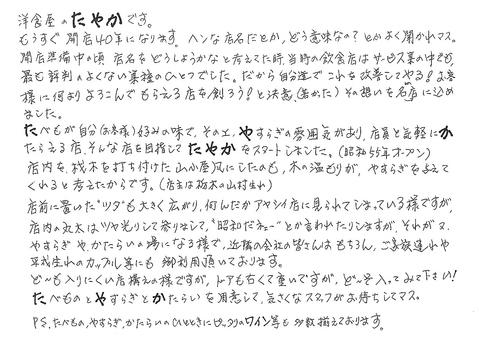 洋食屋のたやかです。
もうすぐ開店40年になります。ヘンな店名だとか、どう意味なの？とかよく聞かれマス。
開店準備中の頃 店名をどうしようかなと考えてた時、当時の飲食店はサービス業の中でも、
最も評判のよくない業種のひとつでした。だから自分達でこれを改善してやる！お客
様に何よりよろこんでもらえる店を創ろう！と決意（若かった）その想いを名店に込め
ました。
たべもが自分（お客様）好みの味で、その上、やすらぎの雰囲気があり、店員と気軽にか
たらえる店、そんな店を目指してたやかをスタートしました。（昭和55年オープン）
店内を、桟木を打ち付けた山小屋風にしたのも、木の温もりが、やすらぎを与えて
くれると考えたからです。（店主は栃木の山村生れ）
店前に置いた"ツタ"も大きく広がり、何んだかアヤシイ店に見られてしまっている様ですが、
店内の丸太はツヤ光りして参りまして、"昭和だネェ〜"とか言われたりしますが、それが又、
やすらぎや、かたらいの場になる様で、近隣の会社の皆さんはもちろん、ご家族連れや
平成生れのカップル等にも御利用頂いております。
ど〜も入りにくい店構えの様ですが、ドアも古くて重いですが、ど〜ぞ入ってみて下さい！
たべものとやすらぎとかたらいを用意して、気さくなスタッフがお待ちしてマス。
P.S. たべもの、やすらぎ、かたらいのひとときにピッタリのワイン等も多数揃えております。